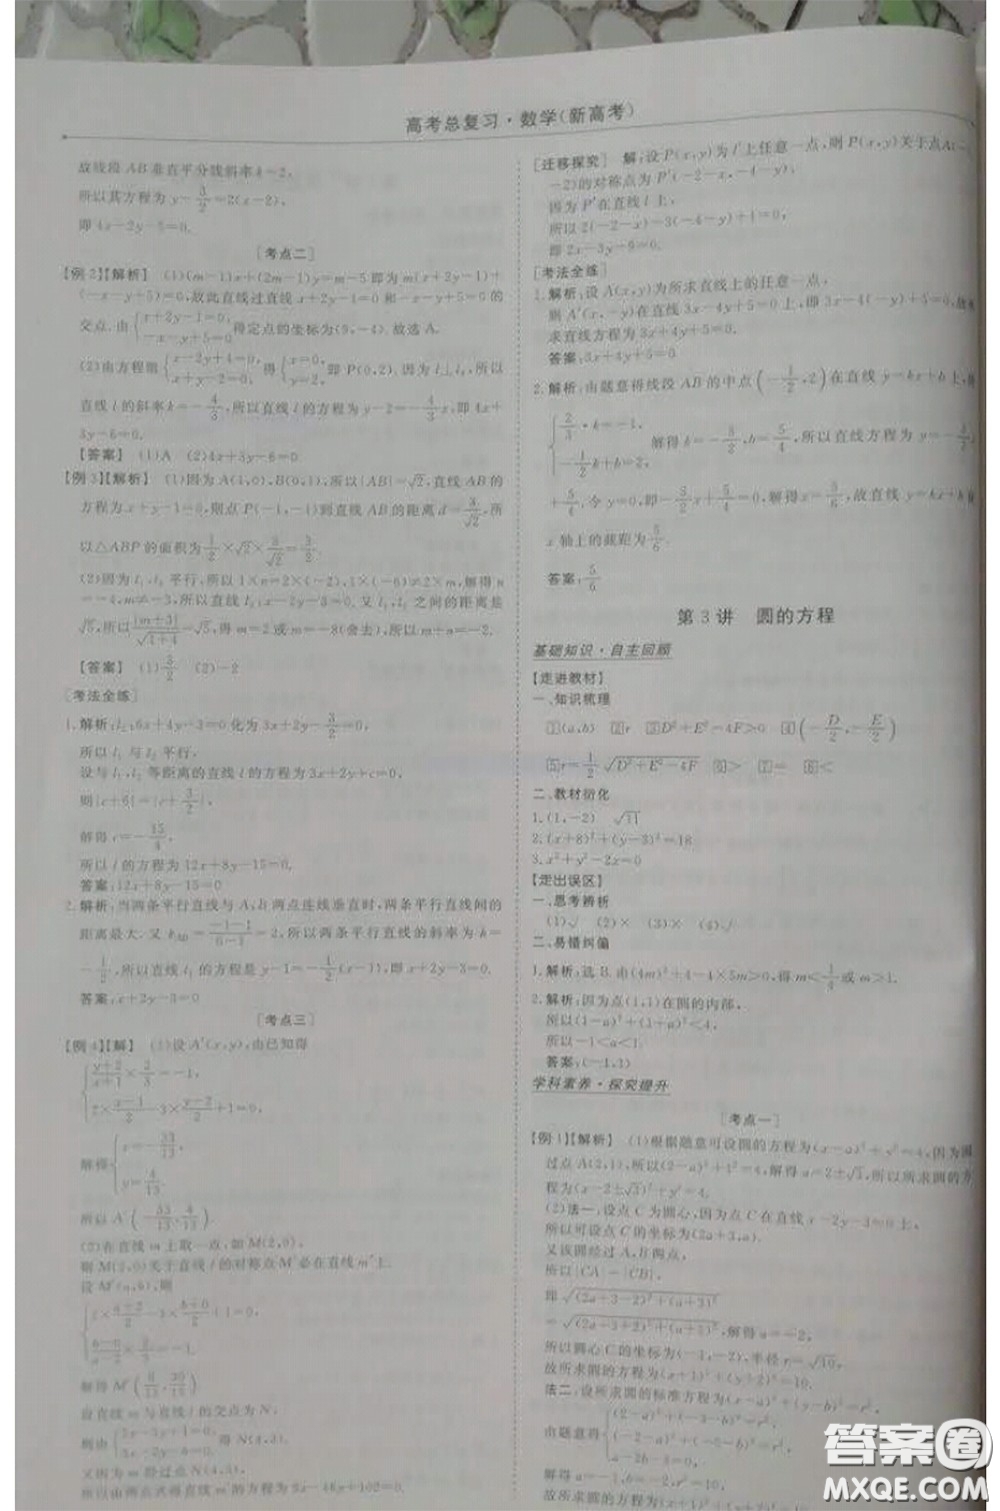 高考总复习·数学(新高考)
故线段 AB 垂直平分线斜率 k=2,
所以其方程为 y-3/2=2(x-2),
即 4x-2y-5=0.
[考点二]
【例 2】【解析】 (1)(m-1)x+(2m-1)y=m-5 即为 m(x+2y-1)+
(-x-y+5)=0,故此直线过直线 x+2y-1=0 和-x-y+5=0 的
交点.由{x+2y-1=0, -x-y+5=0 得定点的坐标为(9,-4).故选 A.
(2)由方程组{x-2y+4=0, x+y-2=0, 得{x=0, y=2, 即 P(0,2).因为 l⊥l₃,所以
直线 l 的斜率 k=-4/3,所以直线 l 的方程为 y-2=-4/3x,即 4x+
3y-6=0.
【答案】 (1)A (2)4x+3y-6=0
【例 3】【解析】 (1)因为 A(1,0),B(0,1),所以|AB|=√2,直线 AB 的
方程为 x+y-1=0,则点 P(-1,-1)到直线 AB 的距离 d=3/√2,所
以△ABP 的面积为 1/2×√2×3/√2=3/2.
(2)因为 l₁,l₂ 平行,所以 1×n=2×(-2),1×(-6)≠2×m,解得 n
=-4,m≠-3,所以直线 l₂:x-2y-3=0.又 l₁,l₂ 之间的距离是
√5,所以|m+3|/√(1+4)=√5,得 m=2 或 m=-8(舍去),所以 m+n=-2.
【答案】 (1)3/2 (2)-2
[考法全练]
1.解析:l₂:6x+4y-3=0 化为 3x+2y-3/2=0,
所以 l₁ 与 l₂ 平行,
设与 l₁,l₂ 等距离的直线 l 的方程为 3x+2y+c=0,
解得 c=-15/4,
所以 l 的方程为 12x+8y-15=0.
答案:12x+8y-15=0
2.解析:当两条平行直线与 A,B 两点连线垂直时,两条平行直线间的
距离最大.又 k_AB=(-1-1)/(0-1)=2,所以两条平行直线的斜率为 k=
-1/2,所以直线 l₁ 的方程是 y-1=-1/2(x-1),即 x+2y-3=0.
答案:x+2y-3=0
[考点三]
【例 4】【解】 (1)设 A′(x,y),由已知得
{(y+2)/(x+1)×2/3=-1, 2×(x-1)/2-3×(y-2)/2+1=0,
解得{x=-33/13, y=4/13.
所以 A′(-33/13,4/13).
(2)在直线 m 上取一点,如 M(2,0),
则 M(2,0)关于直线 l 的对称点 M′必在直线 m′上.
设 M′(a,b),则
{2×(a+2)/2-3×(b+0)/2+1=0, (b-0)/(a-2)×2/3=-1,
解得 M′(6/13,30/13).
设直线 m 与直线 l 的交点为 N,
则由{2x-3y+1=0, 3x-2y-6=0, 得 N(4,3).
又因为 m′经过点 N(4,3).
所以由两点式得直线 m′的方程为 9x-46y+102=0.
【迁移探究】 解:设 P(x,y)为 l′上任意一点,则 P(x,y)关于点 A(-1,
-2)的对称点为 P′(-2-x,-4-y),
因为 P′在直线 l 上,
所以 2(-2-x)-3(-4-y)+1=0,
即 2x-3y-9=0.
[考法全练]
1.解析:设 A(x,y)为所求直线上的任意一点,
则 A′(x,-y)在直线 3x-4y+5=0 上,即 3x-4(-y)+5=0,故所
求直线方程为 3x+4y+5=0.
答案:3x+4y+5=0
2.解析:由题意得线段 AB 的中点(-1/2,2)在直线 y=kx+b 上,故
{2/3·k=-1, -1/2k+b=2, 解得 k=-3/2,b=5/4,所以直线方程为 y=-3/2x
+5/4,令 y=0,即-3/2x+5/4=0,解得 x=5/6,故直线 y=kx+b 在
x 轴上的截距为 5/6.
答案:5/6
第 3 讲 圆的方程
基础知识·自主回顾
【走进教材】
一、知识梳理
①(a,b) ②r ③D²+E²-4F>0 ④(-D/2,-E/2)
⑤r=1/2√(D²+E²-4F) ⑥> ⑦= ⑧<
二、教材衍化
1.(1,-2) √11
2.(x+8)²+(y-3)²=18
3.x²+y²-2x=0
【走出误区】
一、思考辨析
(1)√ (2)× (3)× (4)√
二、易错纠偏
1.解析:选 B.由(4m)²+4-4×5m>0,得 m<1/4或 m>1.
2.解析:因为点(1,1)在圆的内部,
所以(1-a)²+(1+a)²<4,
所以-1<a<1.
答案:(-1,1)
学科素养·探究提升
[考点一]
【例 1】【解析】 (1)根据题意可设圆的方程为(x-a)²+y²=4,因为圆
过点 A(2,1),所以(2-a)²+1²=4,解得 a=2±√3,所以所求圆的方
程为(x-2±√3)²+y²=4.
(2)法一:设点 C 为圆心,因为点 C 在直线 x-2y-3=0 上,
所以可设点 C 的坐标为(2a+3,a).
又该圆经过 A,B 两点,
所以|CA|=|CB|,
即√((2a+3-2)²+(a+3)²)
=√((2a+3+2)²+(a+5)²),解得 a=-2,
所以圆心 C 的坐标为(-1,-2),半径 r=√10,
故所求圆的方程为(x+1)²+(y+2)²=10.
法二:设所求圆的标准方程为(x-a)²+(y-b)²=r²,
由题意得{(2-a)²+(-3-b)²=r², (-2-a)²+(-5-b)²=r², a-2b-3=0,
解得 a=-1,b=-2,r²=10,
故所求圆的方程为(x+1)²+(y+2)²=10.
答案圈
MXQE.COM